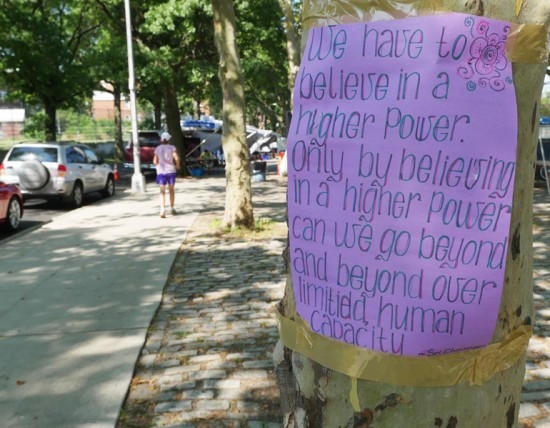 We have to
believe in a
higher Power.
Only by believing
in a higher power
can we go beyond
and beyond over
limitied human
capacity